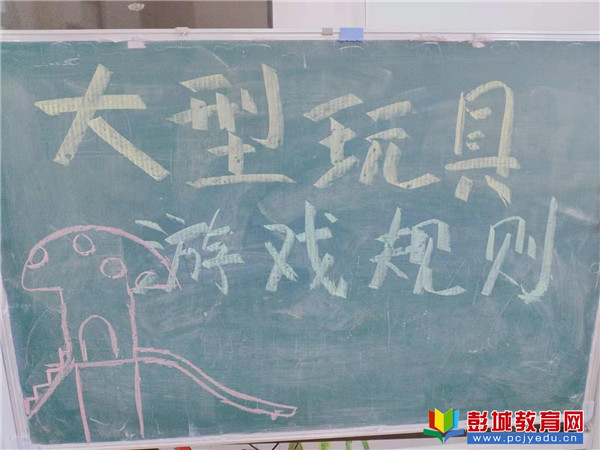 大型玩具
游戏规则
彭城教育网
www.pcjyedu.cn